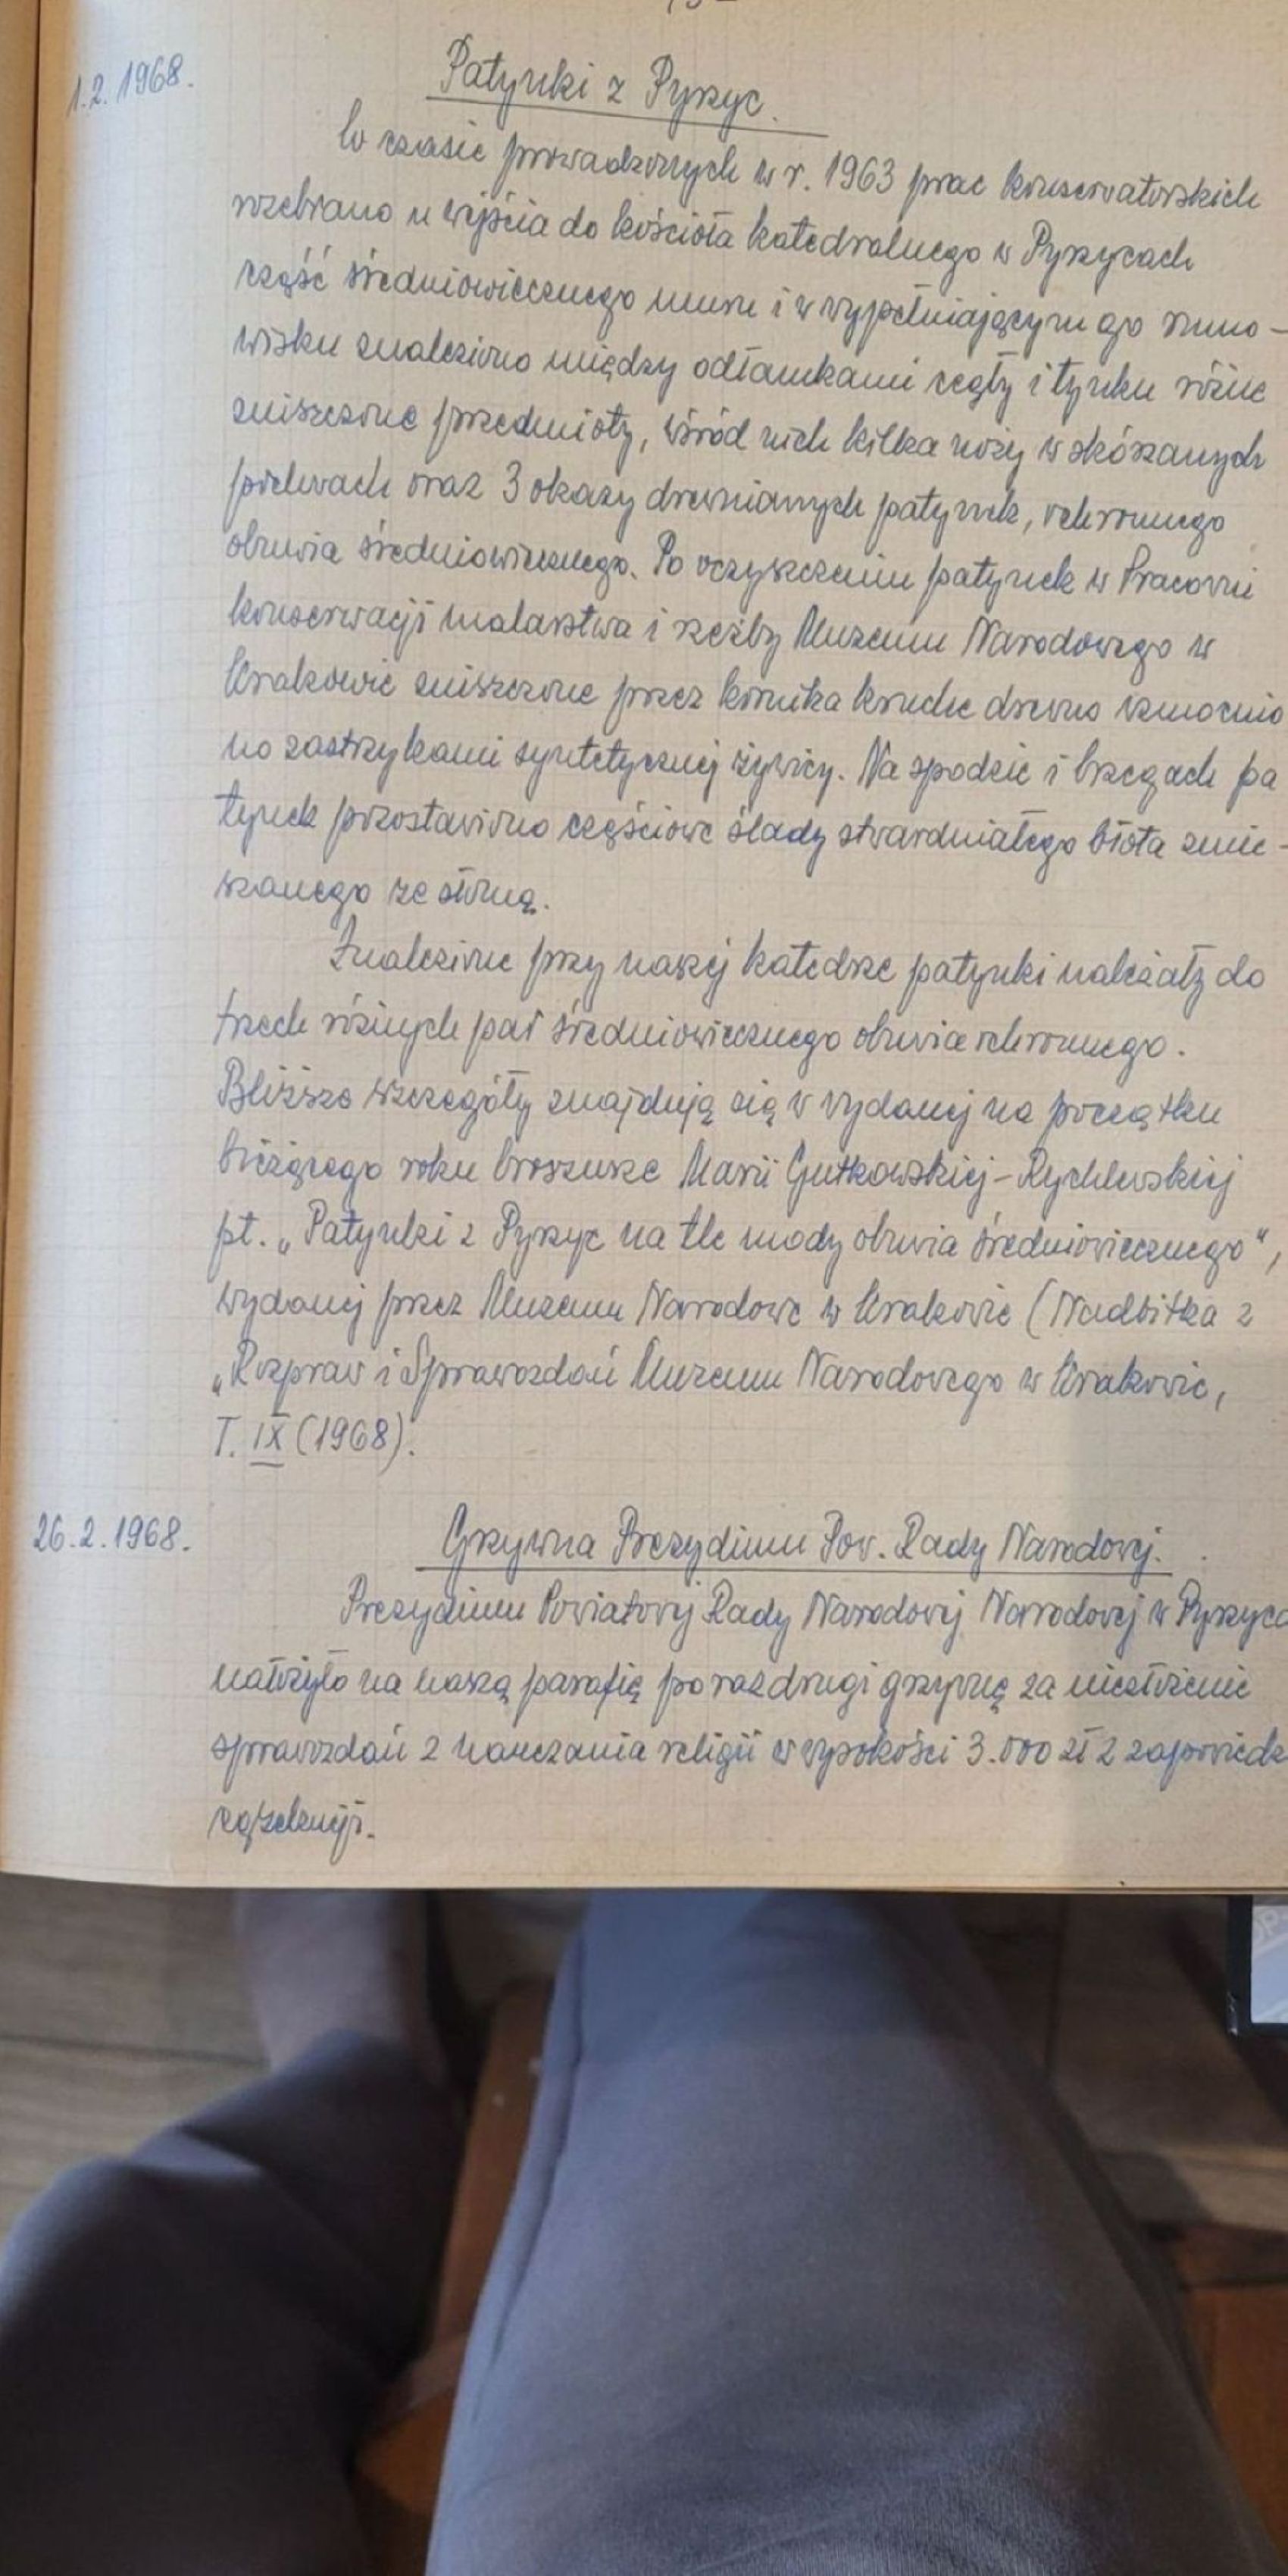 1.2.1968.
Patynki z Pyrzyc.
W czasie prowadzonych w r. 1963 prac konserwatorskich
rozebrano u wejścia do kościoła katedralnego w Pyrzycach
część średniowiecznego muru i w wypełniającym go rumo-
wisku znaleziono między odłamkami cegły i tynku różne
zniszczone przedmioty, wśród nich kilka noży w skórzanych
pochwach oraz 3 okazy drewnianych patynek, ochronnego
obuwia średniowiecznego. Po oczyszczeniu patynek w Pracowni
konserwacji malarstwa i rzeźby Muzeum Narodowego w
Krakowie zniszczone przez kornika kruche drewno wzmocnio
no zastrzykami syntetycznej żywicy. Na spodzie i brzegach pa
tynek pozostawiono częściowe ślady stwardniałego błota zmie-
szanego ze słomą.
Znalezione przy naszej katedrze patynki należały do
trzech różnych par średniowiecznego obuwia ochronnego.
Bliższe szczegóły znajdują się w wydanej na początku
bieżącego roku broszurze Marii Gutkowskiej-Rychlewskiej
pt. „Patynki z Pyrzyc na tle mody obuwia średniowiecznego",
wydanej przez Muzeum Narodowe w Krakowie (Nadbitka z
„Rozpraw i Sprawozdań Muzeum Narodowego w Krakowie,
T. IX (1968).
26.2.1968.
Grzywna Prezydium Pow. Rady Narodowej.
Prezydium Powiatowej Rady Narodowej Narodowej w Pyrzyca
nałożyło na naszą parafię po raz drugi grzywnę za niezłożenie
sprawozdań z nauczania religii w wysokości 3.000 zł z zapowiedz
egzekucji.